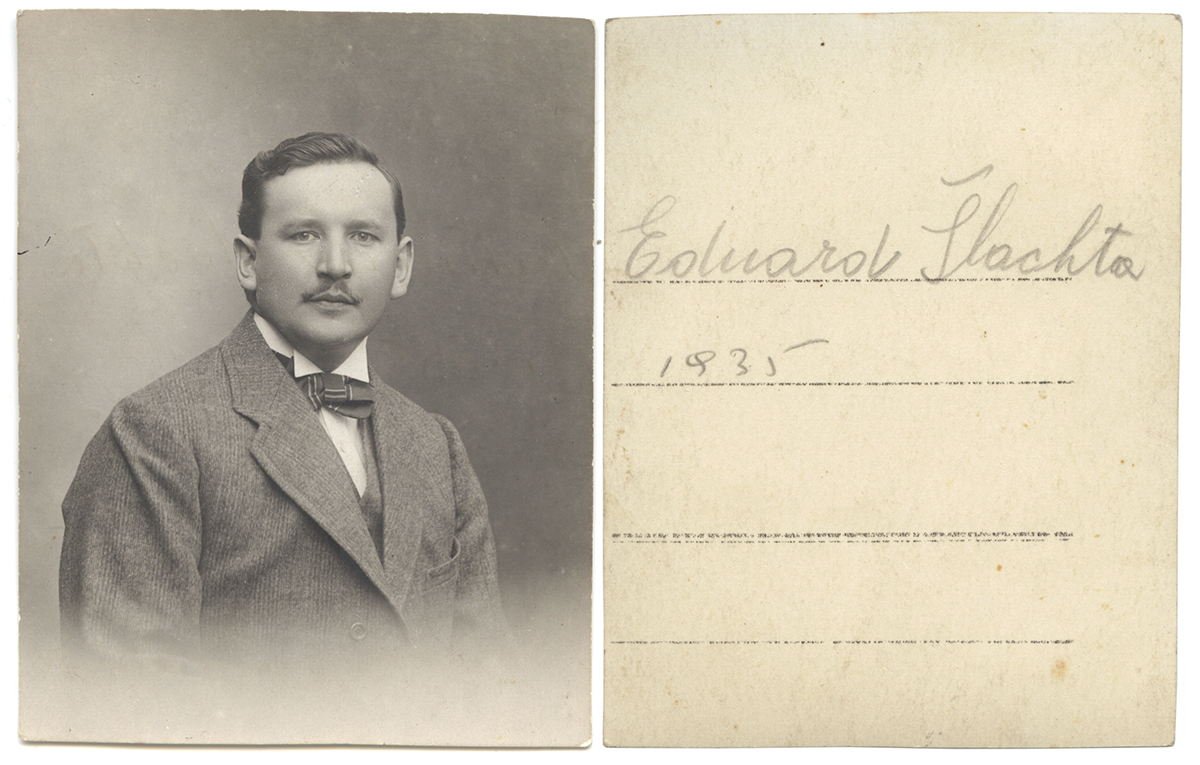 Eduard Šlachta
1935